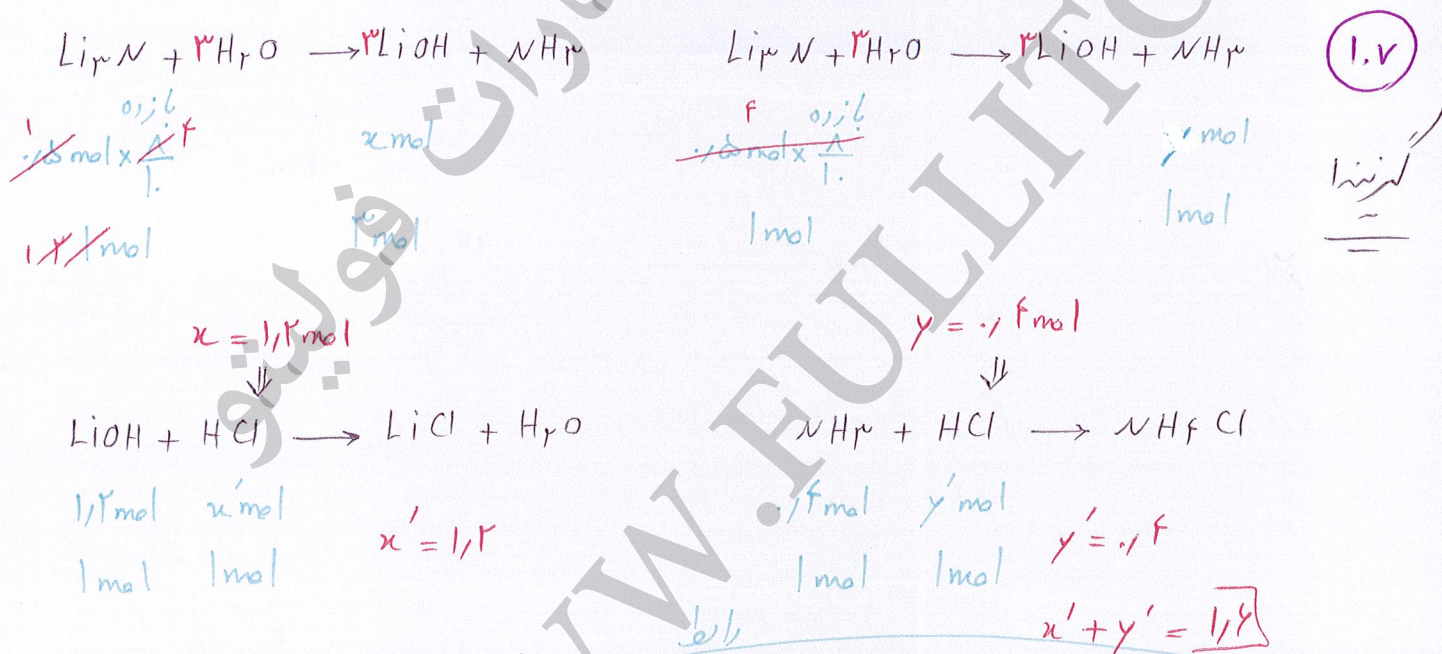 ۱۰۷
گزینه ۱
Li۳N + ۳H۲O → ۳LiOH + NH۳
بازده
۰,۵ mol × ۸/۱۰ ۴ ۱
x mol
۱ ۲ ۱ mol
۳ mol
x = ۱,۲ mol
⇓
LiOH + HCl → LiCl + H۲O
۱,۲ mol x' mol
x' = ۱,۲
۱ mol ۱ mol
Li۳N + ۳H۲O → ۳LiOH + NH۳
۴ بازده
۰,۵ mol × ۸/۱۰
y mol
۱ mol
۱ mol
y = ۰,۴ mol
⇓
NH۳ + HCl → NH۴Cl
۰,۴ mol y' mol
y' = ۰,۴
۱ mol ۱ mol
x' + y' = ۱,۶
رابط
فولیتو
WW.FULLITO